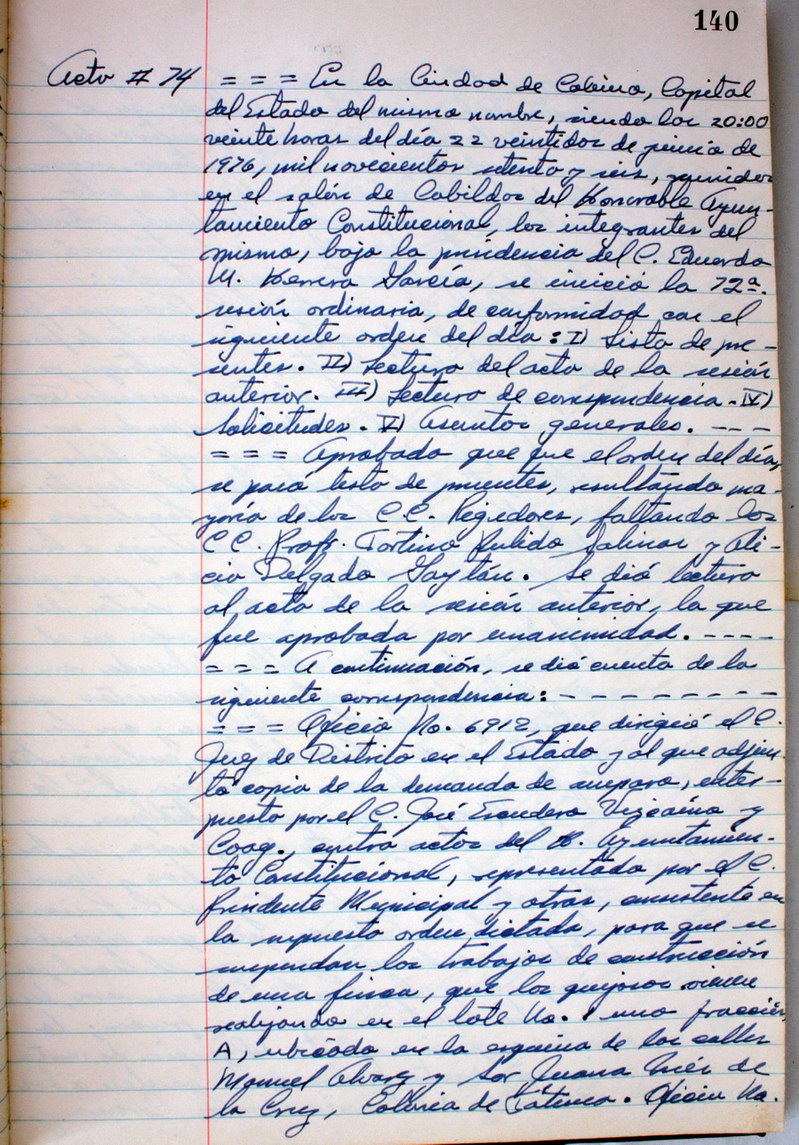 140
Acta # 74 = = = En la Ciudad de Colima, Capital
del Estado del mismo nombre, siendo las 20:00
veinte horas del día 22 veintidos de junio de
1976, mil novecientos setenta y seis, reunidos
en el salón de Cabildos del Honorable Ayun-
tamiento Constitucional, los integrantes del
mismo, bajo la presidencia del C. Eduardo
M. Herrera García, se inició la 72ª.
sesión ordinaria, de conformidad con el
siguiente orden del día: I) Lista de pre-
sentes. II) Lectura del acta de la sesión
anterior. III) Lectura de correspondencia. IV)
Solicitudes. V) Asuntos generales. - - -
= = = Aprobado que fue el orden del día,
se pasa lista de presentes, resultando ma-
yoría de los C.C. Regidores, faltando los
CC. Profr. Tortino Pulido Salinas y Ali-
cia Delgado Gaytán. Se dió lectura
al acta de la sesión anterior, la que
fue aprobada por unanimidad. - - - -
= = = A continuación, se dió cuenta de la
siguiente correspondencia: - - - - - - - - -
= = = Oficio No. 6912, que dirigió el C.
Juez de Distrito en el Estado y al que adjun-
ta copia de la demanda de amparo, inter-
puesta por el C. José Escudero Vizcaíno y
Coag., contra actos del H. Ayuntamien-
to Constitucional, representado por el C.
Presidente Municipal y otras, consistente en
la supuesta orden dictada, para que se
suspendan los trabajos de construcción
de una finca, que los quejosos vienen
realizando en el lote No. 1 uno fracción
A, ubicada en la esquina de las calles
Manuel Alvarez y Sor Juana Inés de
la Cruz, Colonia de Fátima. Oficio No.